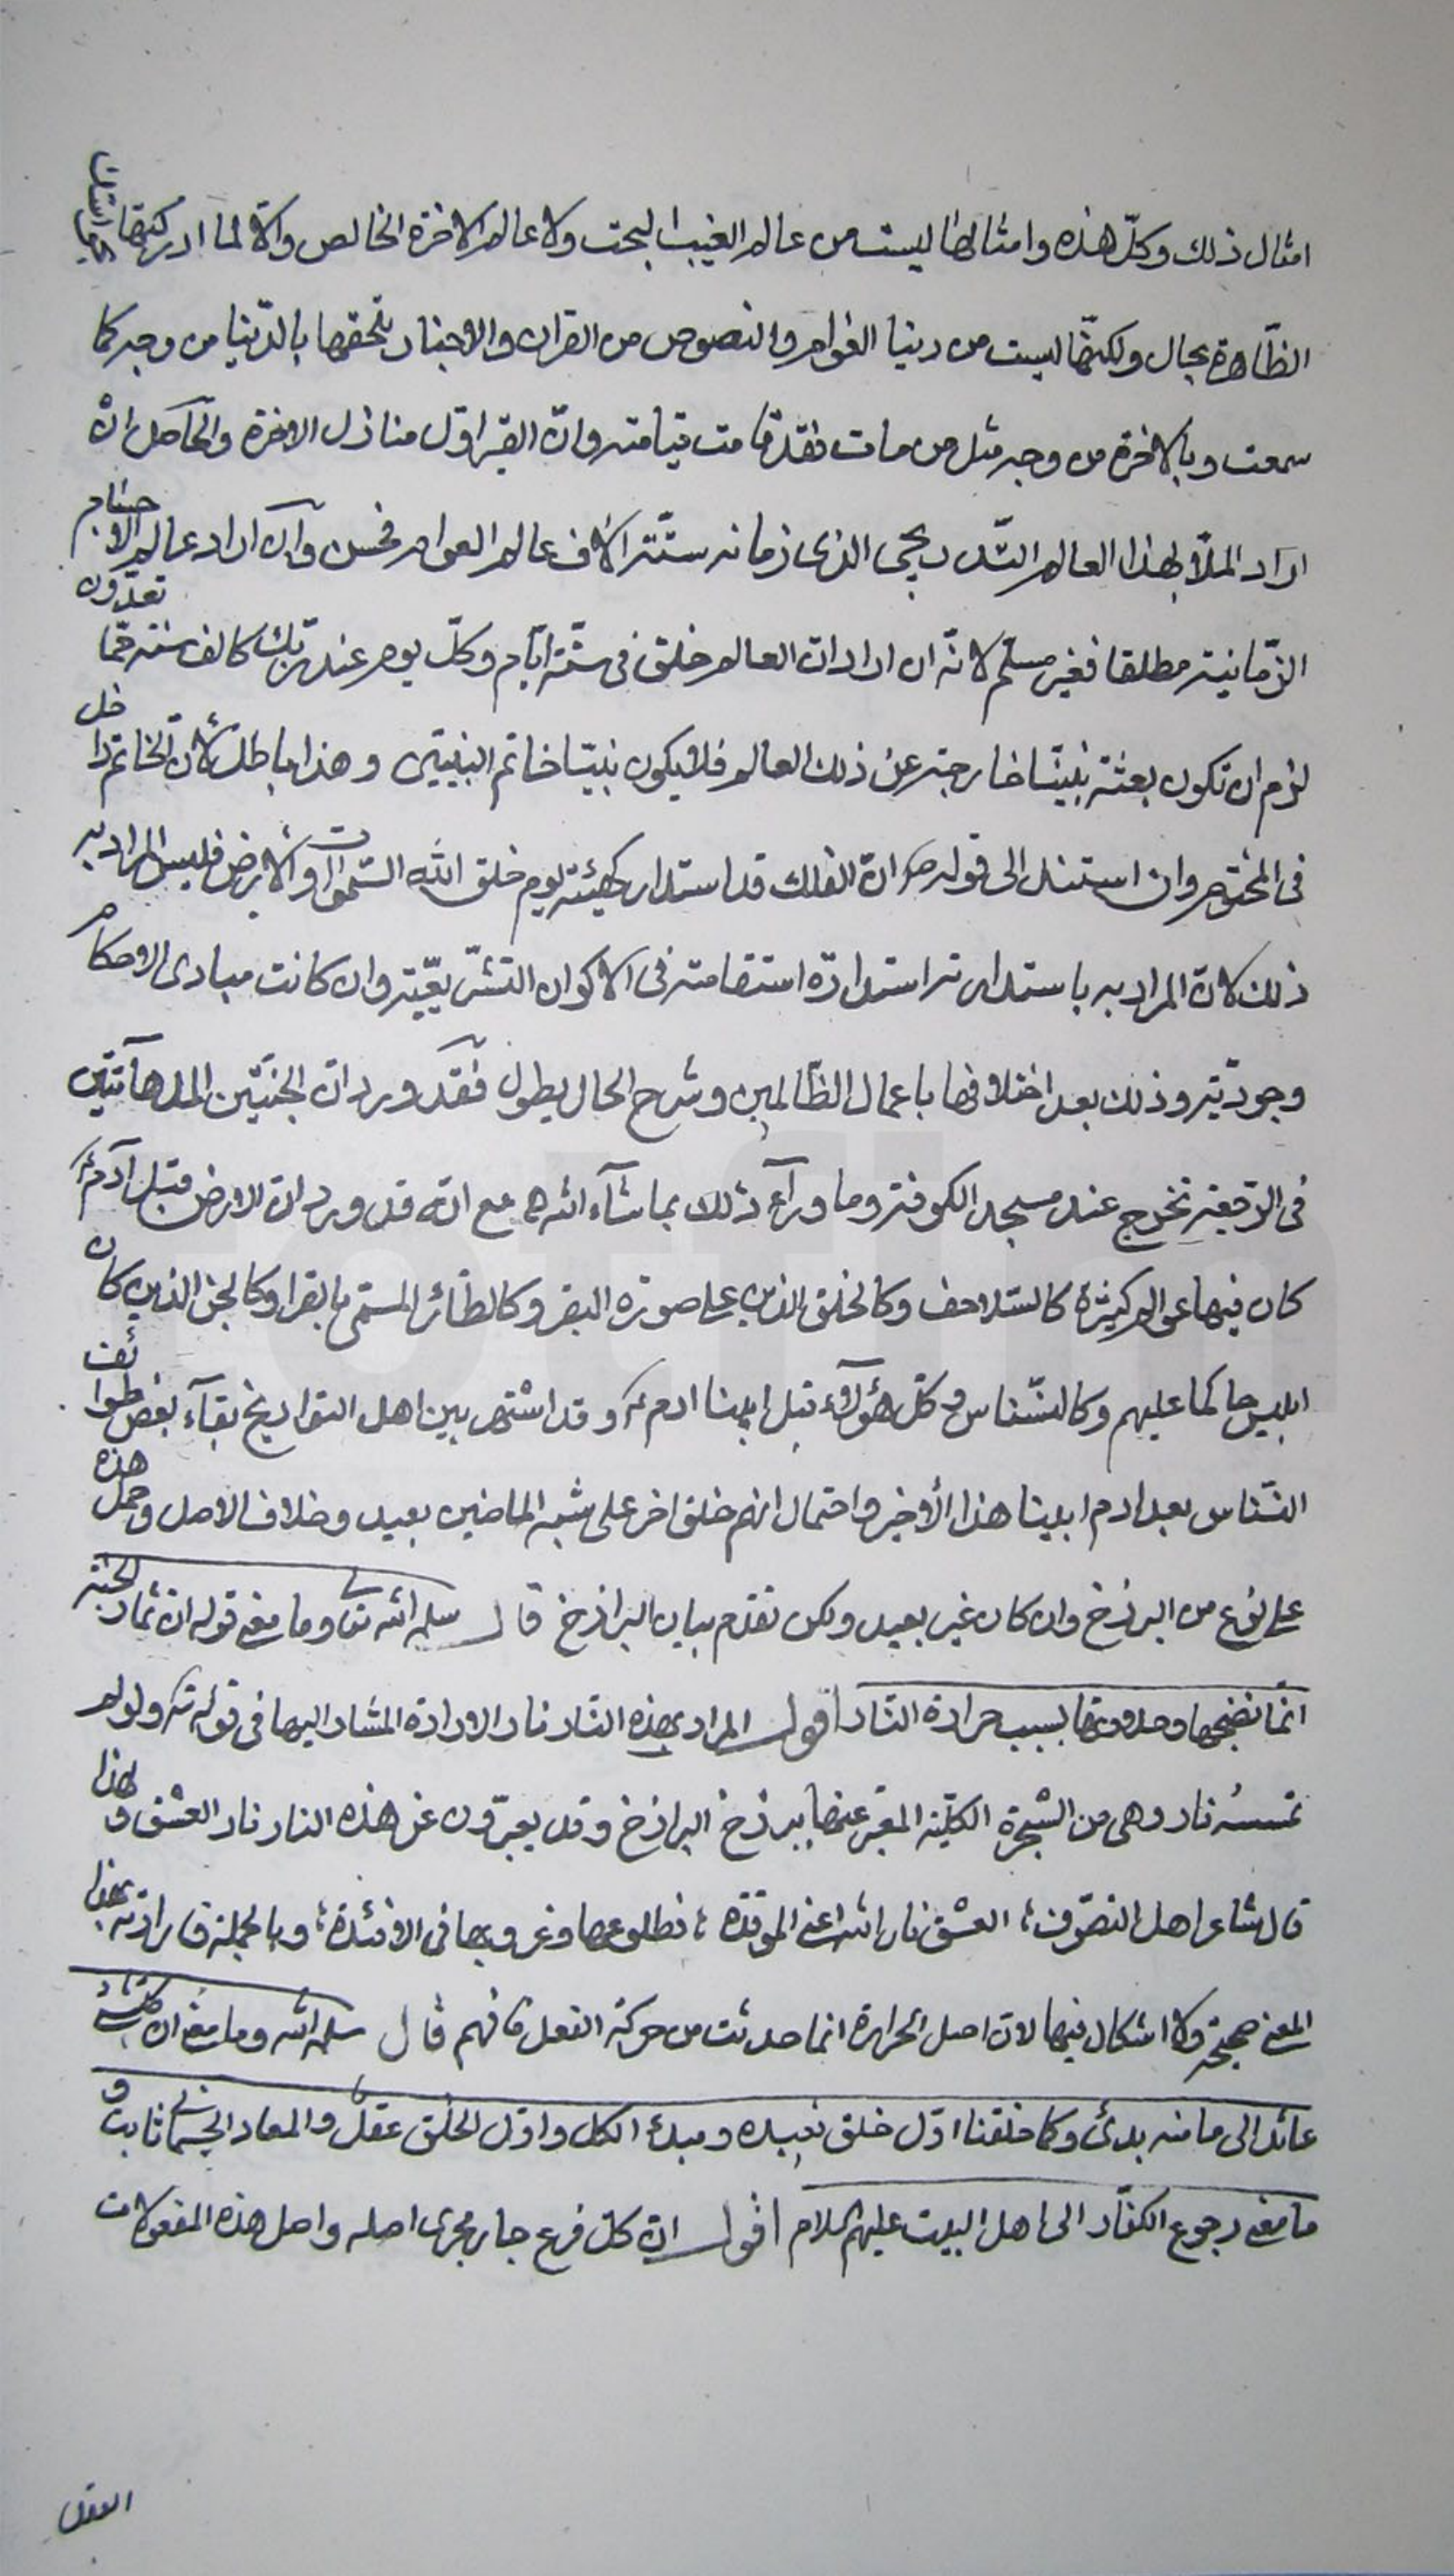 امثال ذلك وكلّ هذه وامثالها ليست من عالم الغيب البحت ولا عالم الاخرة الخالص والّا لما ادركتها
الظّاهرة بحال ولكنّها ليست من دنيا العوام والنصوص من القران والاخبار تلحقها بالدّنيا من وجه كما
سمعت وبالاخرة من وجه مثل من مات فقد قامت قيامته وانّ القبر اوّل منازل الاخرة والحاصل انّه
اراد الملّا بهذا العالم التّدريجى الذى زمانه ستّة آلاف عالم العوام فحسن وان اراد عالم الاجسام
الزّمانيّة مطلقا فغير مسلّم لانّه ان اراد انّ العالم خلق فى ستّة ايّام وكلّ يوم عند ربّك كالف سنة ممّا تعدّون
لزم ان تكون بعثة نبيّنا خارجة عن ذلك العالم فلا يكون نبيّنا خاتم النبيّين وهذا باطل لأنّ الخاتم داخل
فى المختوم وان استند الى قوله ص انّ الفلك قد استدار كهيئته يوم خلق الله السّموات والأرض فليس المراد به
ذلك لانّ المراد به باستدارته استدارة استقامته فى الاكوان التشريعيّة وان كانت مبادى الاحكام
وجوديّة وذلك بعد اختلافها باعمال الظّالمين وشرح الحال يطول فقد ورد انّ الجنّتين المدهآمّتين
فى الرّجعة تخرج عند مسجد الكوفة وما ورآء ذلك بما شآء الله مع انّه قد ورد انّ الارض قبل آدم
كان فيها عوالم كثيرة كالسّلاحف وكالخلق الذين على صورة البقر وكالطّائر المسمّى بالقرا وكالجن الذين كان
ابليس حاكما عليهم وكالنّسناس وكلّ هؤلآء قبل ابينا ادم ع وقد اشتهر بين اهل التواريخ بقآء بعض طوائف
النّسناس بعد ادم ابينا هذا الأخير واحتمال انهم خلق اخر على شبه الماضين بعيد وخلاف الاصل وحمل هذه
على نوع من البرزخ وان كان غير بعيد ولكن تقدم بيان البرازخ قال سلمه الله تعا وما معنى قوله انّ ثمار الجنّة
انّما نضجها وحلاوتها بسبب حرارة النّار اقول المراد بهذه النّار نار الارادة المشار اليها فى قوله تع ولو لم
تمسسه نار وهى من الشجرة الكلّيّة المعبّر عنها ببرزخ البرازخ وقد يعبّرون عن هذه النار نار العشق ولهذا
قال شاعر اهل التصوّف؛ العشق نار الله اعنى الموقدة؛ فطلوعها وغروبها فى الافئدة؛ وبالجملة فارادته بهذا
المعنى صحيحة ولا اشكال فيها لانّ اصل الحرارة انما حدثت من حركة الفعل فافهم قال سلمه الله وما معنى ان كلّ شئ
عائد الى ما منه بدئ وكما خلقنا اوّل خلق نعيده ومبدء الكل واوّل الخلق عقل والمعاد الجسمانى ثابت و
ما معنى رجوع الكفّار الى اهل البيت عليهم السلام اقول انّ كلّ فرع جار مجرى اصله واصل هذه المفعولات
العقل